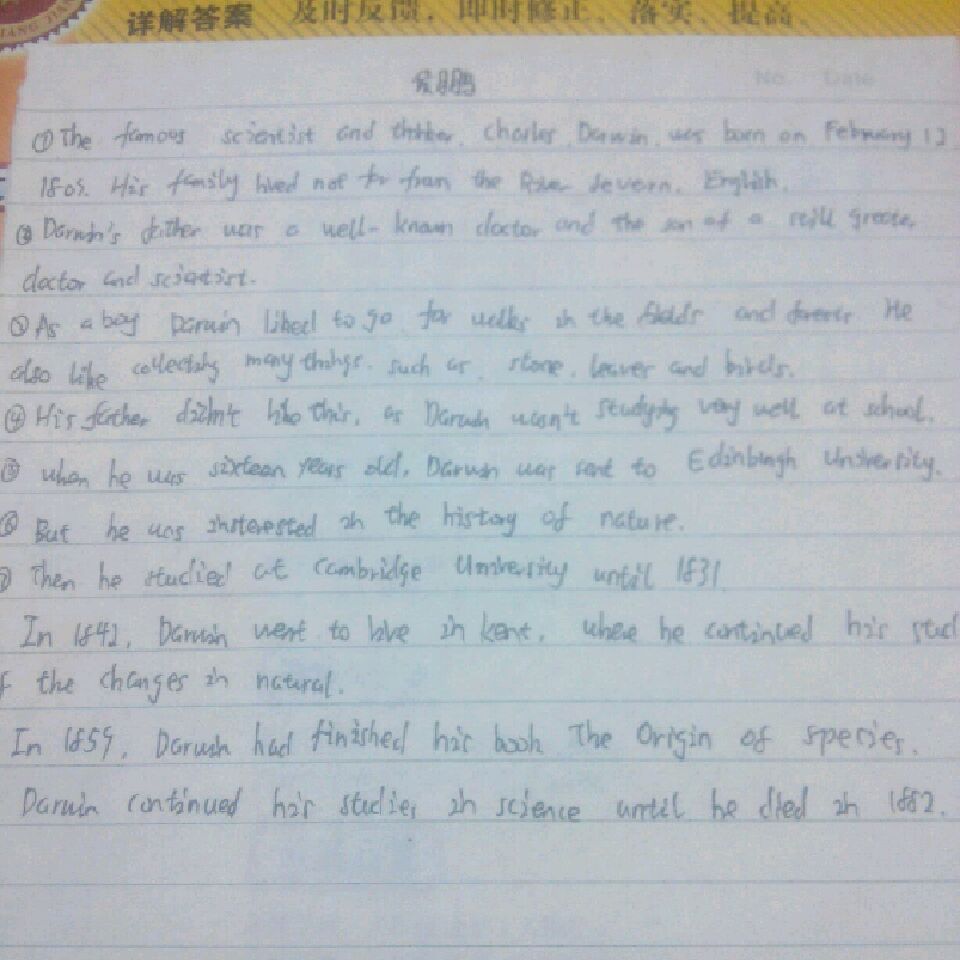 详解答案 及时反馈，即时修正，落实、提高。
No. Date
①The famous scientist and thinker, Charles Darwin, was born on February 12
1809. His family lived not far from the River Severn, English.
② Darwin's father was a well-known doctor and the son of a still greater
doctor and scientist.
③As a boy Darwin liked to go for walks in the fields and forests He
also like collecting many things, such as, stone, leaves and birds.
④ His father didn't like this, as Darwin wasn't studying very well at school.
⑤ when he was sixteen years old, Darwin was sent to Edinburgh University.
⑥ But he was interested in the history of nature.
⑦ Then he studied at Cambridge University until 1831
In 1842, Darwin went to live in kent, where he continued his stud
f the changes in natural.
In 1859, Darwin had finished his book The Origin of species.
Darwin continued his studies in science until he died in 1882.